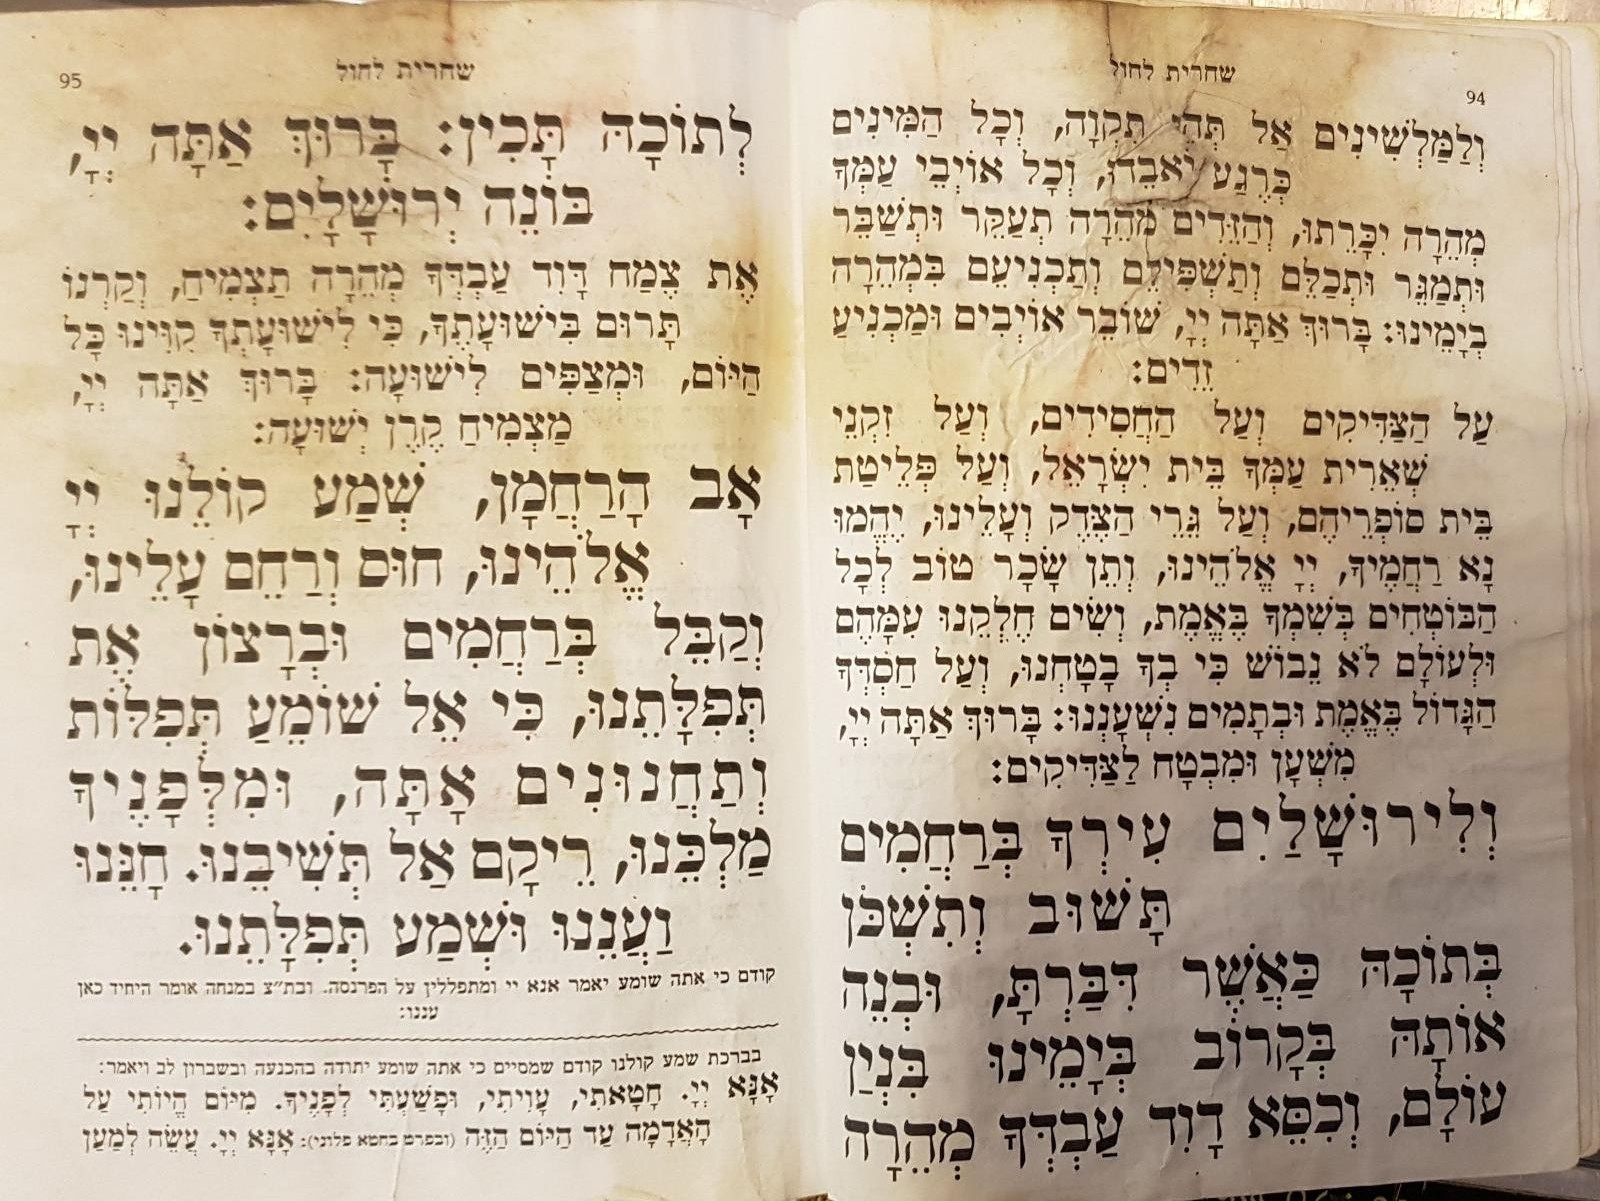 94
שחרית לחול
וְלַמַּלְשִׁינִים אַל תְּהִי תִקְוָה, וְכָל הַמִּינִים
כְּרֶגַע יֹאבֵדוּ, וְכָל אוֹיְבֵי עַמְּךָ
מְהֵרָה יִכָּרֵתוּ, וְהַזֵּדִים מְהֵרָה תְעַקֵּר וּתְשַׁבֵּר
וּתְמַגֵּר וּתְכַלֵּם וְתַשְׁפִּילֵם וְתַכְנִיעֵם בִּמְהֵרָה
בְיָמֵינוּ: בָּרוּךְ אַתָּה יְיָ, שׁוֹבֵר אוֹיְבִים וּמַכְנִיעַ
זֵדִים:
עַל הַצַּדִּיקִים וְעַל הַחֲסִידִים, וְעַל זִקְנֵי
שְׁאֵרִית עַמְּךָ בֵּית יִשְׂרָאֵל, וְעַל פְּלֵיטַת
בֵּית סוֹפְרֵיהֶם, וְעַל גֵּרֵי הַצֶּדֶק וְעָלֵינוּ, יֶהֱמוּ
נָא רַחֲמֶיךָ, יְיָ אֱלֹהֵינוּ, וְתֵן שָׂכָר טוֹב לְכָל
הַבּוֹטְחִים בְּשִׁמְךָ בֶּאֱמֶת, וְשִׂים חֶלְקֵנוּ עִמָּהֶם
וּלְעוֹלָם לֹא נֵבוֹשׁ כִּי בְךָ בָטָחְנוּ, וְעַל חַסְדְּךָ
הַגָּדוֹל בֶּאֱמֶת וּבְתָמִים נִשְׁעָנְנוּ: בָּרוּךְ אַתָּה יְיָ,
מִשְׁעָן וּמִבְטָח לַצַּדִּיקִים:
וְלִירוּשָׁלַיִם עִירְךָ בְּרַחֲמִים
תָּשׁוּב וְתִשְׁכֹּן
בְּתוֹכָהּ כַּאֲשֶׁר דִּבַּרְתָּ, וּבְנֵה
אוֹתָהּ בְּקָרוֹב בְּיָמֵינוּ בִּנְיַן
עוֹלָם, וְכִסֵּא דָוִד עַבְדְּךָ מְהֵרָה
שחרית לחול
95
לְתוֹכָהּ תָּכִין: בָּרוּךְ אַתָּה יְיָ,
בּוֹנֵה יְרוּשָׁלָיִם:
אֶת צֶמַח דָּוִד עַבְדְּךָ מְהֵרָה תַצְמִיחַ, וְקַרְנוֹ
תָּרוּם בִּישׁוּעָתֶךָ, כִּי לִישׁוּעָתְךָ קִוִּינוּ כָּל
הַיּוֹם, וּמְצַפִּים לִישׁוּעָה: בָּרוּךְ אַתָּה יְיָ,
מַצְמִיחַ קֶרֶן יְשׁוּעָה:
אָב הָרַחֲמָן, שְׁמַע קוֹלֵנוּ יְיָ
אֱלֹהֵינוּ, חוּס וְרַחֵם עָלֵינוּ,
וְקַבֵּל בְּרַחֲמִים וּבְרָצוֹן אֶת
תְּפִלָּתֵנוּ, כִּי אֵל שׁוֹמֵעַ תְּפִלּוֹת
וְתַחֲנוּנִים אָתָּה, וּמִלְּפָנֶיךָ
מַלְכֵּנוּ, רֵיקָם אַל תְּשִׁיבֵנוּ. חָנֵּנוּ
וַעֲנֵנוּ וּשְׁמַע תְּפִלָּתֵנוּ.
קודם כי אתה שומע יאמר אנא יי ומתפללין על הפרנסה. ובת״צ במנחה אומר היחיד כאן
עננו:
בברכת שמע קולנו קודם שמסיים כי אתה שומע יתודה בהכנעה ובשברון לב ויאמר:
אָנָּא יְיָ. חָטָאתִי, עָוִיתִי, וּפָשַׁעְתִּי לְפָנֶיךָ. מִיּוֹם הֱיוֹתִי עַל
הָאֲדָמָה עַד הַיּוֹם הַזֶּה (ובפרט בחטא פלוני): אָנָּא יְיָ. עֲשֵׂה לְמַעַן